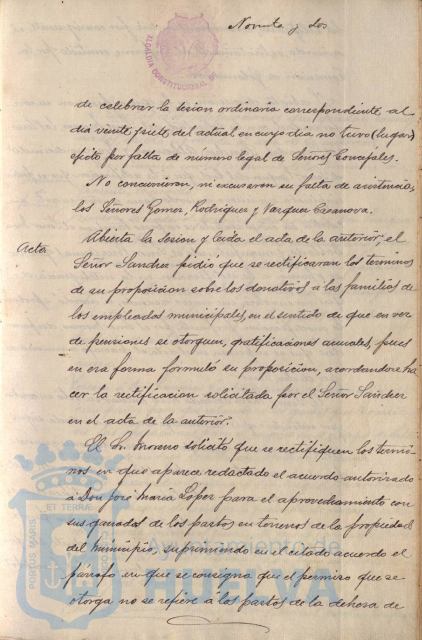 Noventa y dos
ALCALDIA CONSTITUCIONAL DE
de celebrar la sesion ordinaria correspondiente, al
dia veinte y siete del actual en cuyo dia no tuvo (lugar)
efecto por falta de número legal de Señores Concejales.
No concurrieron, ni excusaron su falta de asistencia,
los Señores Gomez, Rodriguez y Vazquez Casanova.
Acta
Abierta la sesion y leida el acta de la anterior, el
Señor Sanchez pidió que se rectificaran los terminos
de su proposicion sobre los donativos a las familias de
los empleados municipales, en el sentido de que en vez
de pensiones se otorguen, gratificaciones anuales, pues
en esa forma formuló su proposicion, acordandose ha
cer la rectificacion solicitada por el Señor Sanchez
en el acta de la anterior.
El Sr. Moreno solicitó que se rectifiquen los termi-
nos en que aparece redactado el acuerdo autorizado
a Don José María Lopez para el aprovechamiento con
sus ganados de los pastos en terrenos de la propiedad
del municipio, suprimiendo en el citado acuerdo el
párrafo en que se consigna que el permiso que se
otorga no se refiere á los pastos de la dehesa de
PORTUS MARIS ET TERRÆ
Ayuntamiento de
HUELVA